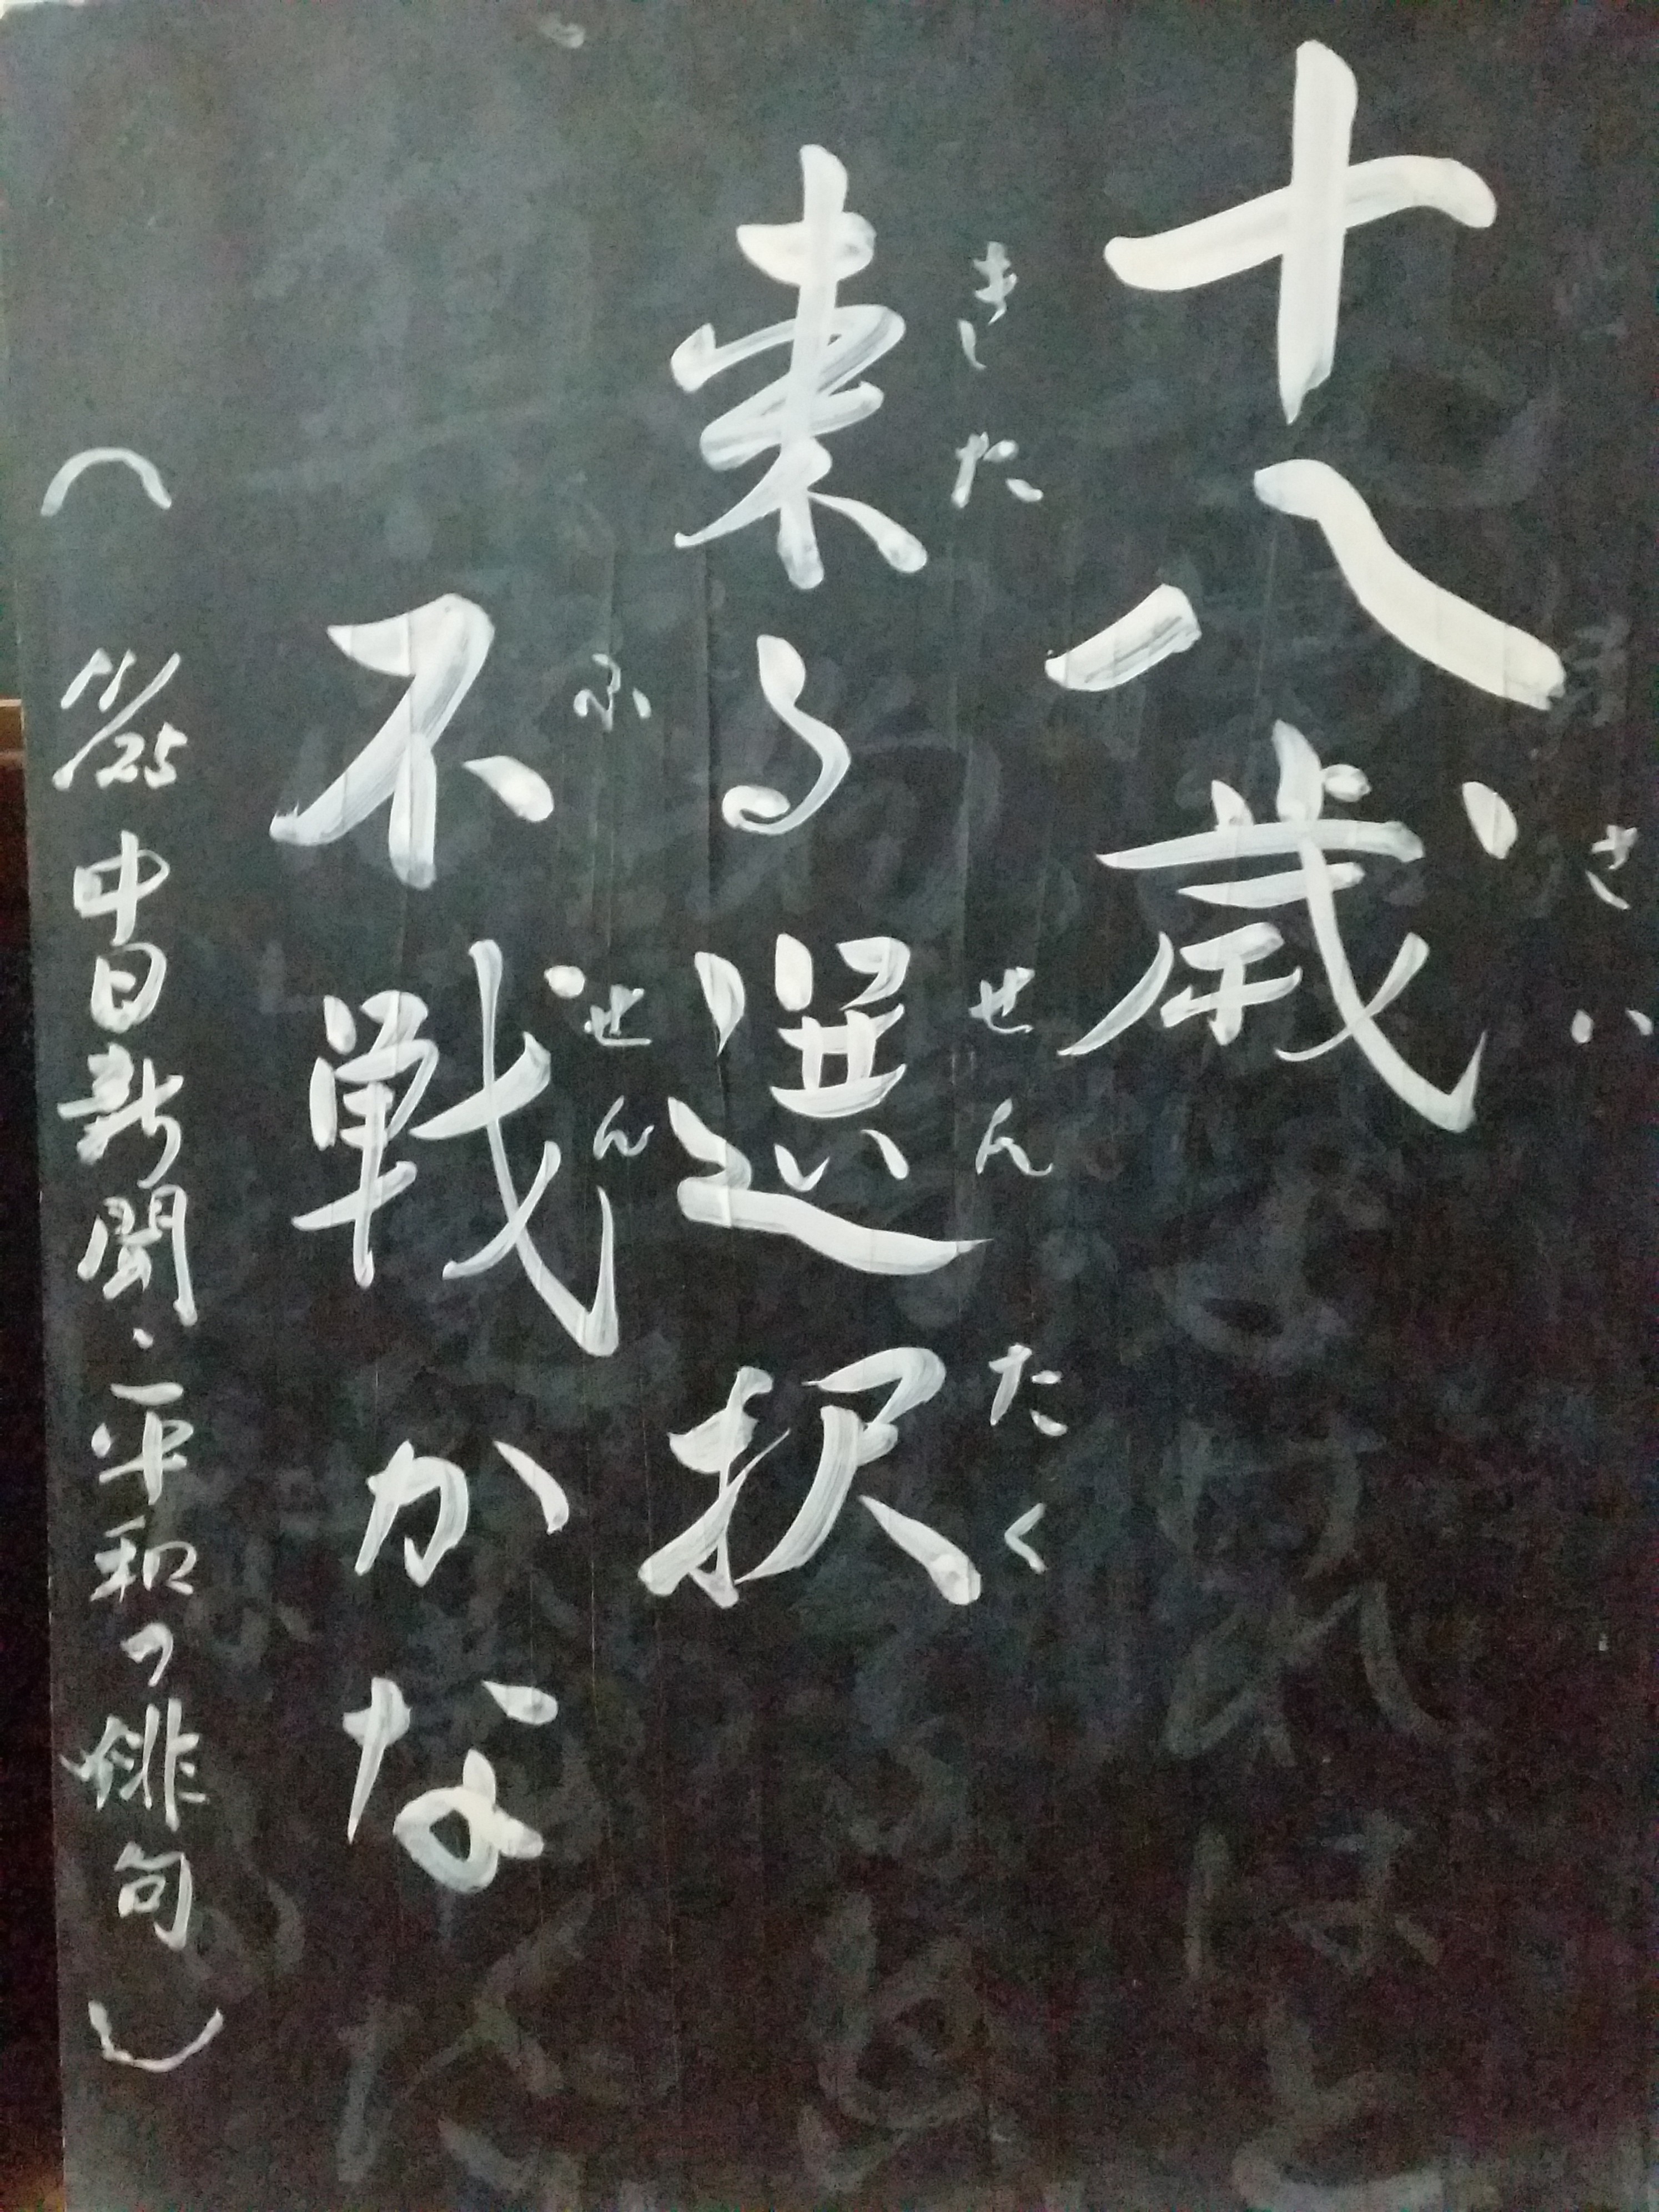 十八歳
来る選択
不戦かな
(11/25 中日新聞、平和の俳句)
さい
きた
せんたく
ふせん